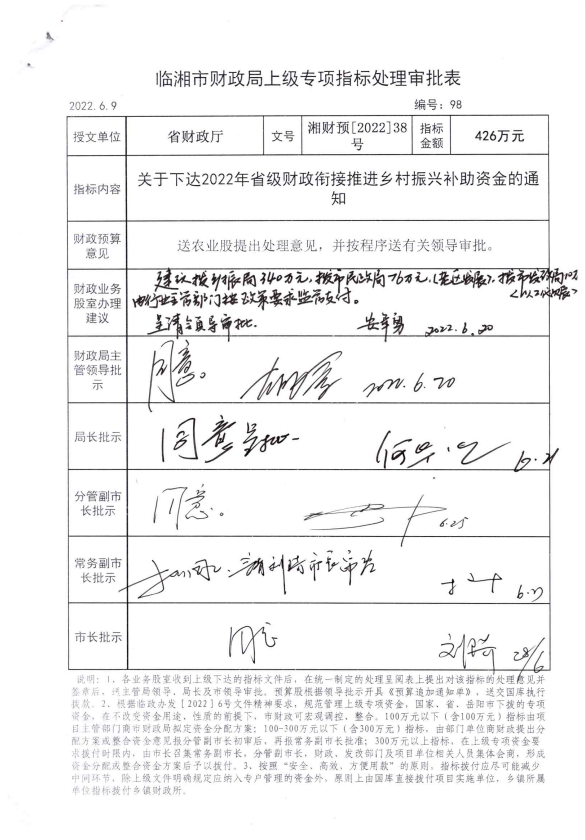 临湘市财政局上级专项指标处理审批表
2022.6.9 编号：98
授文单位 省财政厅 文号 湘财预[2022]38号 指标金额 426万元
指标内容 关于下达2022年省级财政衔接推进乡村振兴补助资金的通知
财政预算意见 送农业股提出处理意见，并按程序送有关领导审批。
财政业务股室办理建议 建议拨乡振局340万元，拨市民政局76万元，(老区发展)，拨市发改局10万
由行业主管部门按政策要求监管支付。
呈请领导审批. 2022.6.20
财政局主管领导批示 同意。 2022.6.20
局长批示 同意呈批 6.21
分管副市长批示 同意。 6.25
常务副市长批示 6.27
市长批示 同意 28/6
说明：1、各业务股室收到上级下达的指标文件后，在统一制定的处理呈阅表上提出对该指标的处理意见并
签章后，送主管局领导、局长及市领导审批。预算股根据领导批示开具《预算追加通知单》，送交国库执行
拨款。2、根据临办发［2022］6号文件精神要求，规范管理上级专项资金，国家、省、岳阳市下拨的专项
资金，在不改变资金用途、性质的前提下，市财政可宏观调控，整合。100万元以下（含100万元）指标由项
目主管部门商市财政局拟定资金分配方案；100-300万元以下（含300万元）指标，由部门单位商财政提出分
配方案或整合资金意见报分管副市长初审后，再报常务副市长批准；300万元以上指标，在上级专项资金要
求拨付时限内，由市长召集常务副市长，分管副市长，财政、发改部门及项目单位相关人员集体会商，形成
资金分配或整合方案后予以拨付。3、按照“安全、高效、方便用款”的原则，指标拨付应尽可能减少
中间环节，除上级文件明确规定应纳入专户管理的资金外，原则上由国库直接拨付项目实施单位，乡镇所属
单位指标拨付乡镇财政所。